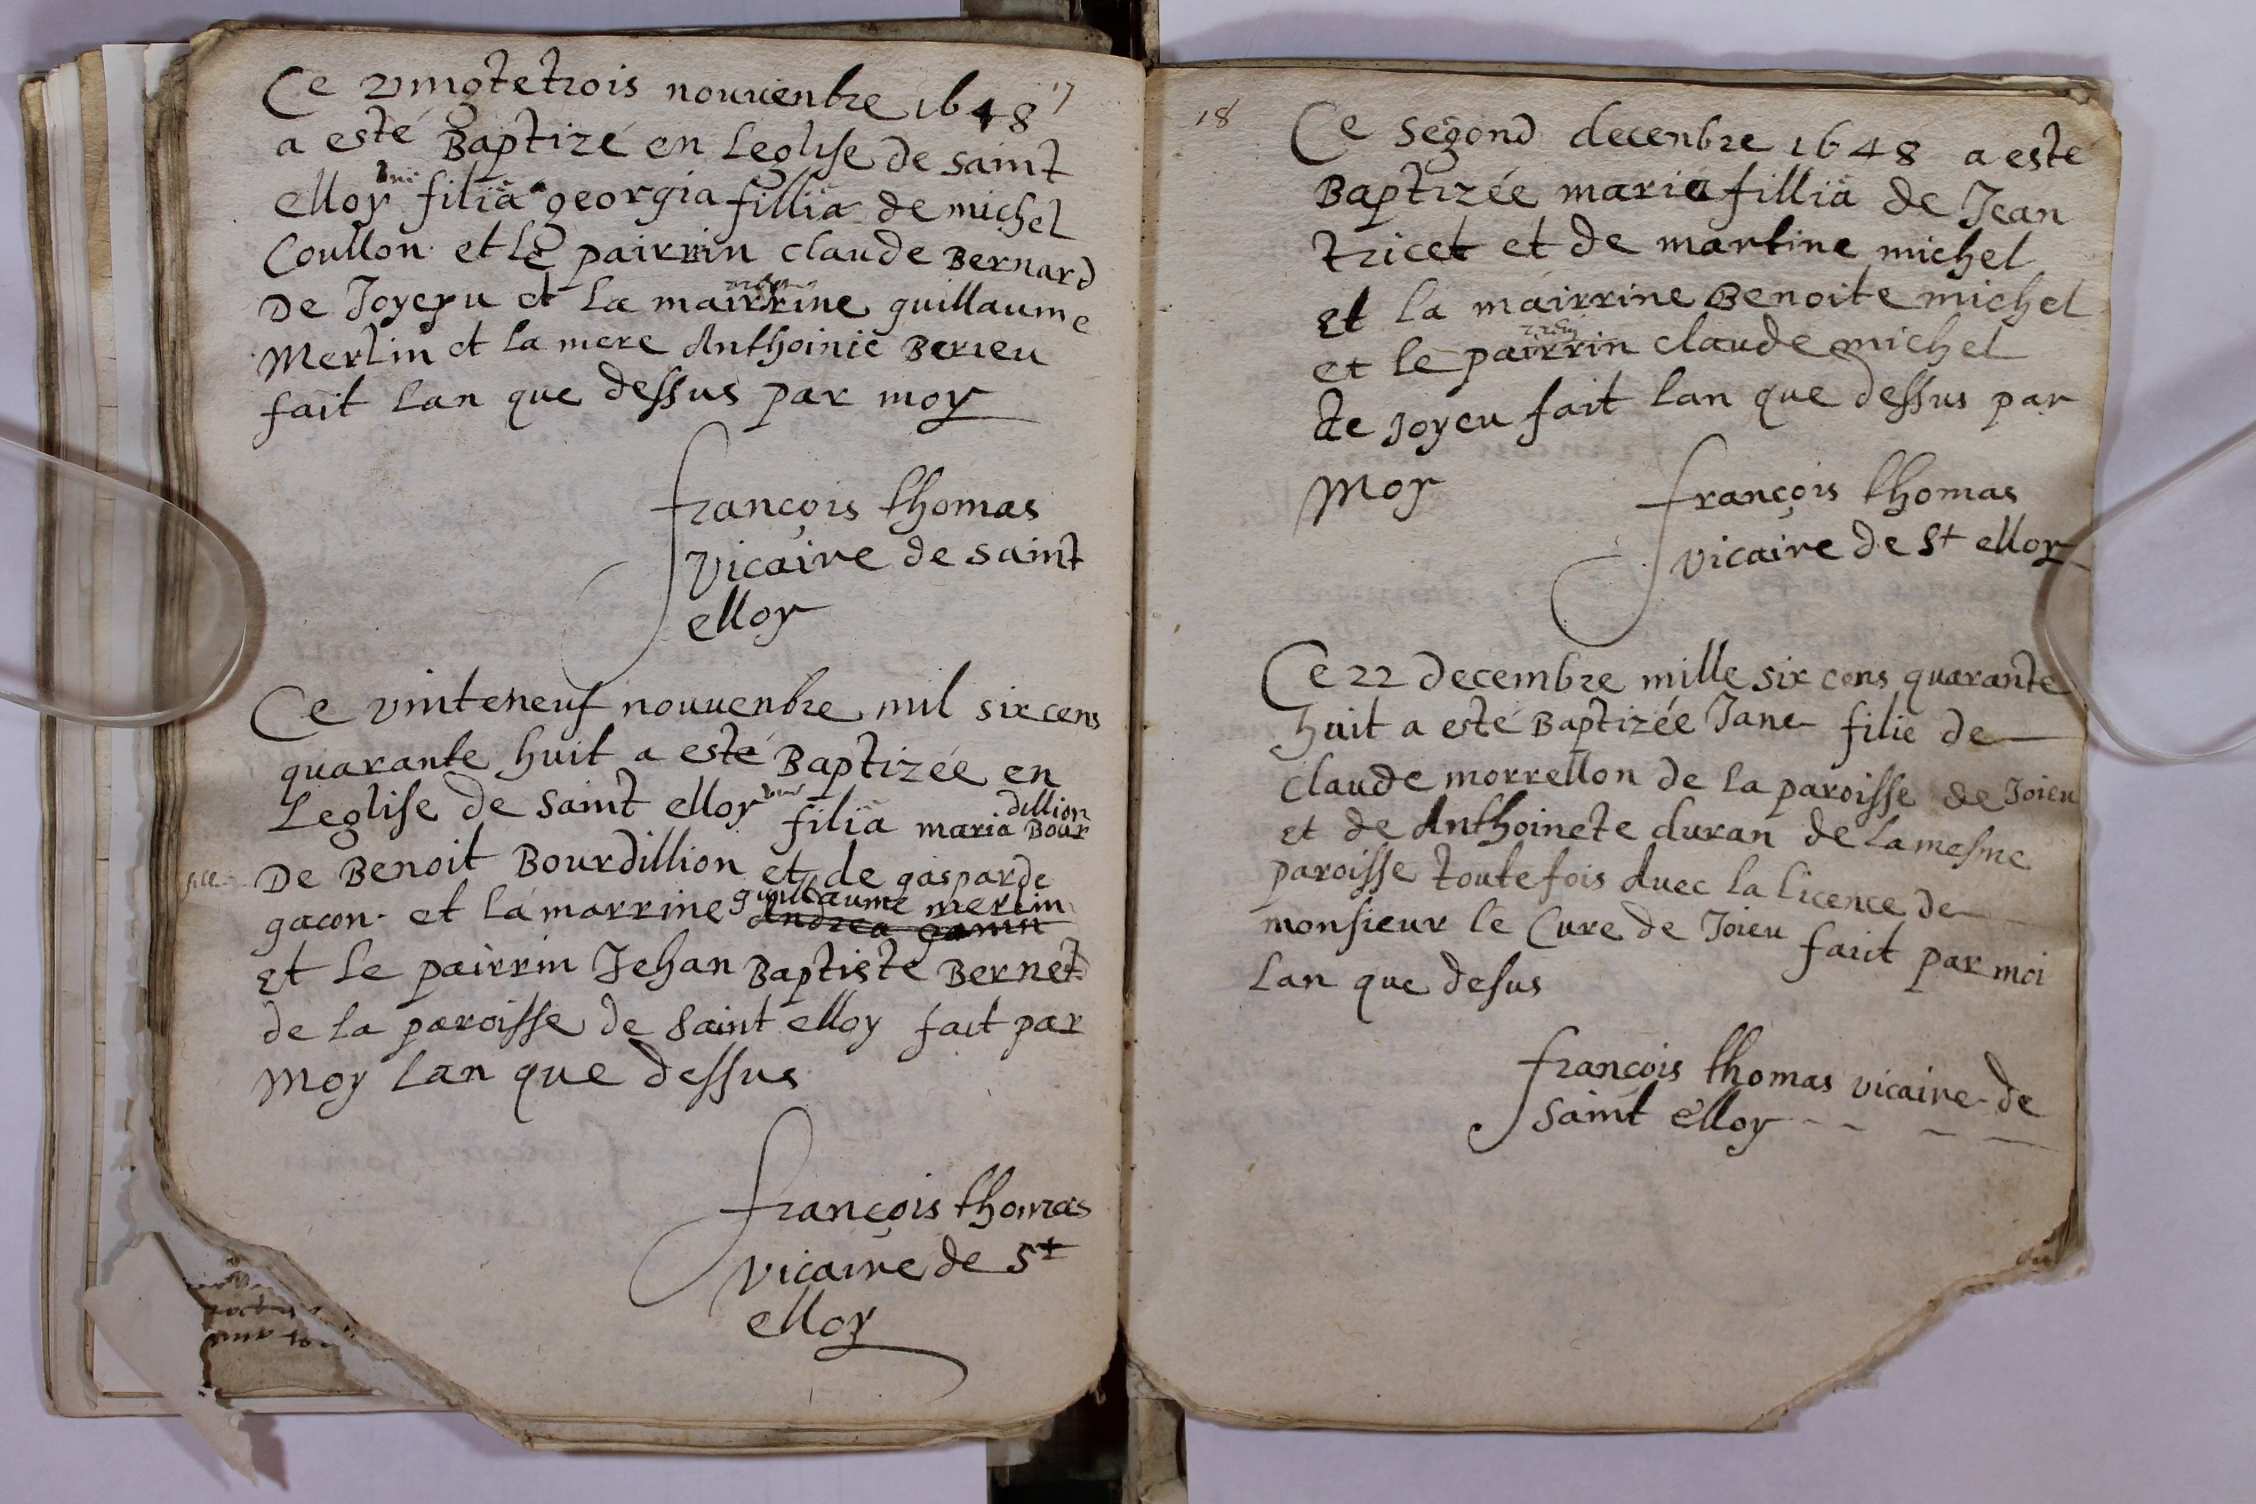 17
Ce vingtetrois nouuenbre 1648
a esté Baptizé en Leglise de saint
elloy vne filia georgia fillia de michel
Coullon et le pairrin claude Bernard
De Joyeru et la mairrine guillaume
Merlin et la mere Anthoinie Berieu
fait lan que dessus par moy
françois thomas
vicaire de saint
elloy
Ce vinteneuf nouuenbre mil six cens
quarante huit a esté Baptizée en
Leglise de saint elloy vne filia maria Bour
dillion
De Benoit Bourdillion et de gasparde
gacon et la marrine guillaume merlin
et le pairrin Jehan Baptiste Bernet
de la paroisse de saint elloy fait par
moy lan que dessus
françois thomas
vicaire de St
elloy
18
Ce segond decenbre 1648 a esté
Baptizée maria fillia de Jean
tricet et de martine michel
et la mairrine Benoite michel
et le pairrin claude michel
de joyeu fait lan que dessus par
moy
françois thomas
vicaire de St elloy
Ce 22 decembre mille six cens quarante
huit a esté Baptizée Jane filie de
claude morrellon de la paroisse de Joieu
et de Anthoinete duran de la mesme
paroisse toutefois auec la licence de
monsieur le Cure de Joieu fait par moi
lan que desus
françois thomas vicaire de
saint elloy